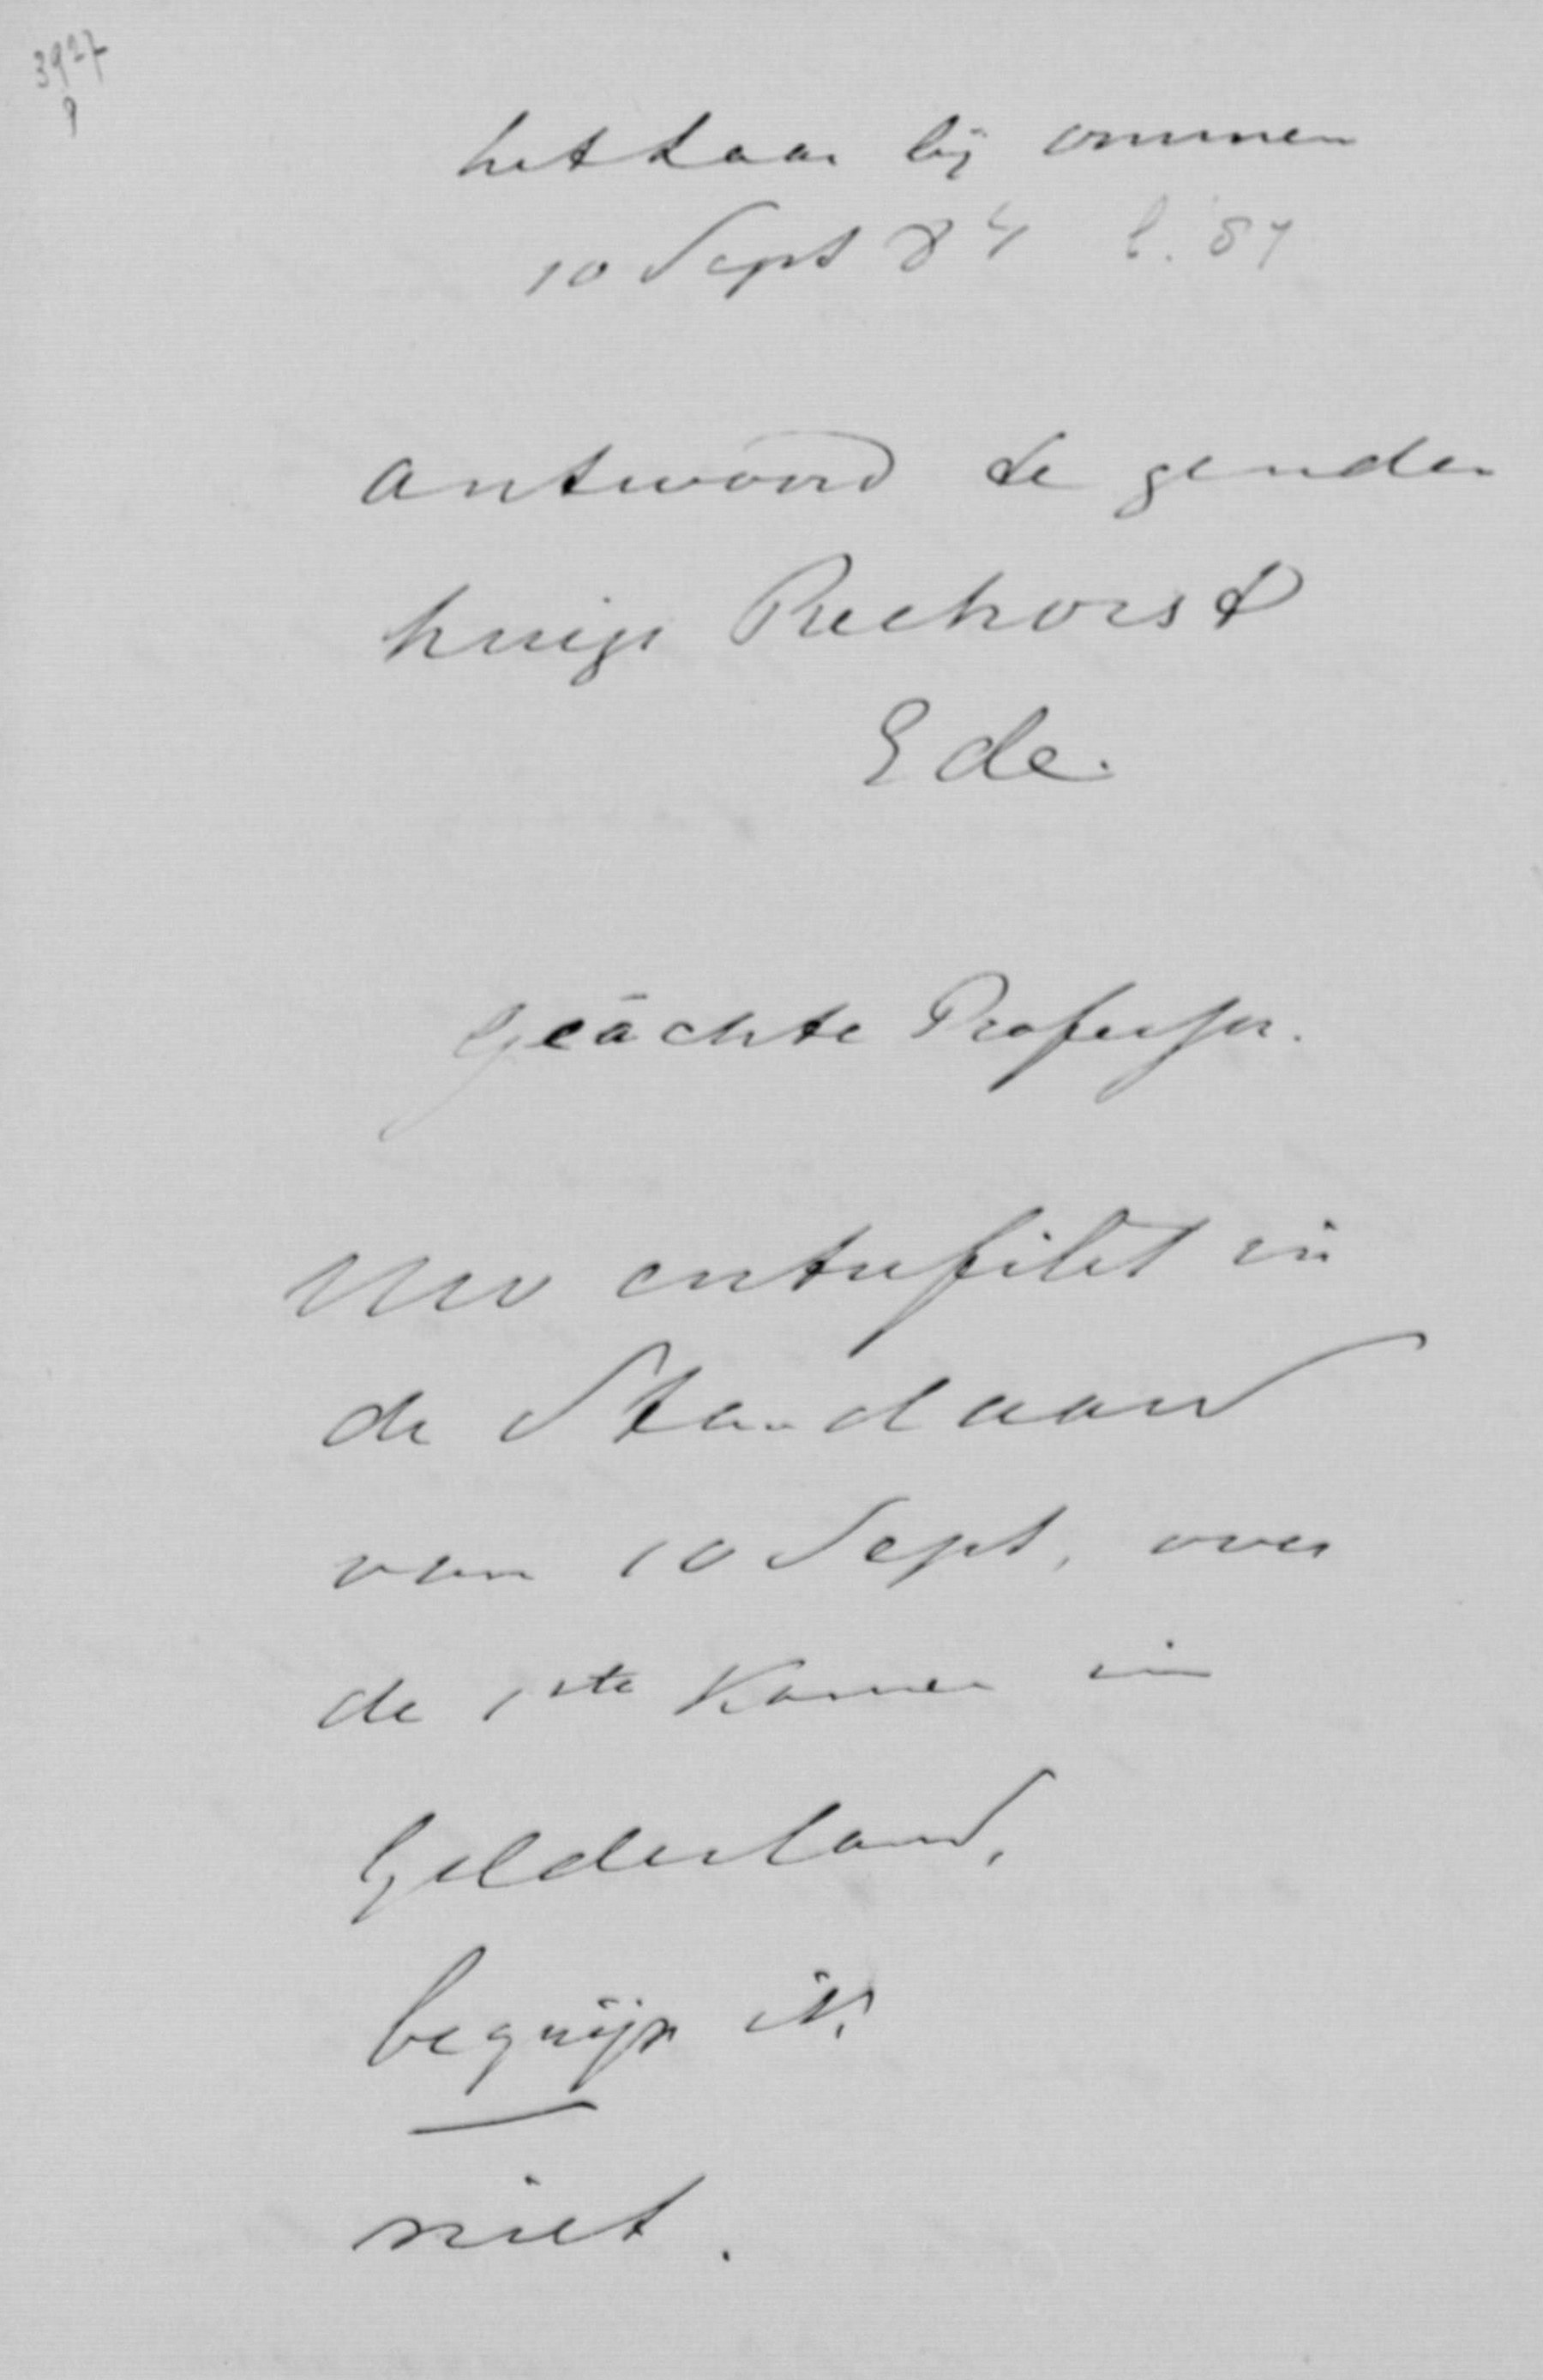 3927
het Laar bij ommen
10 Sept 84 b. 84
antwoord te zenden
huize Reehorst
Ede.
Geächte Professor.
Uw entrefilet in
de Standaard
van 10 Sept, over
de 1ste Kamer in
Gelderland,
begrijp ik
niet.